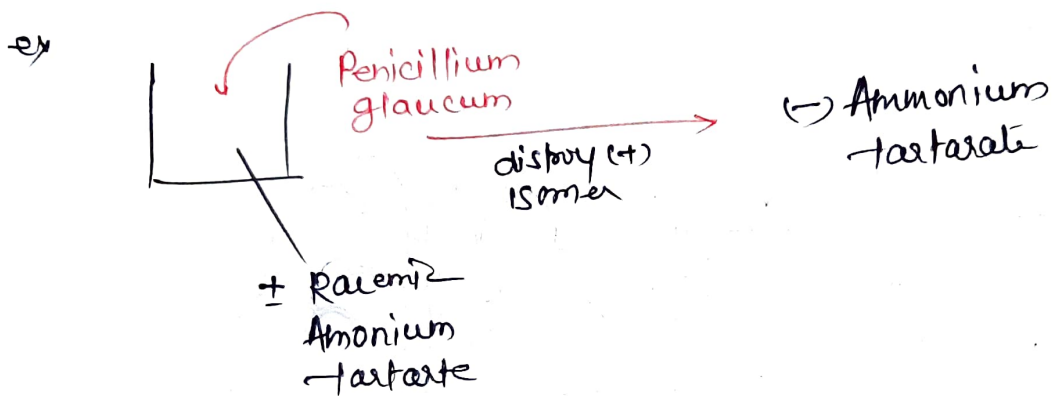 ex
Penicillium
glaucum
distroy (+)
isomer
(-) Ammonium
tartarate
± Racemic
Amonium
tartarte